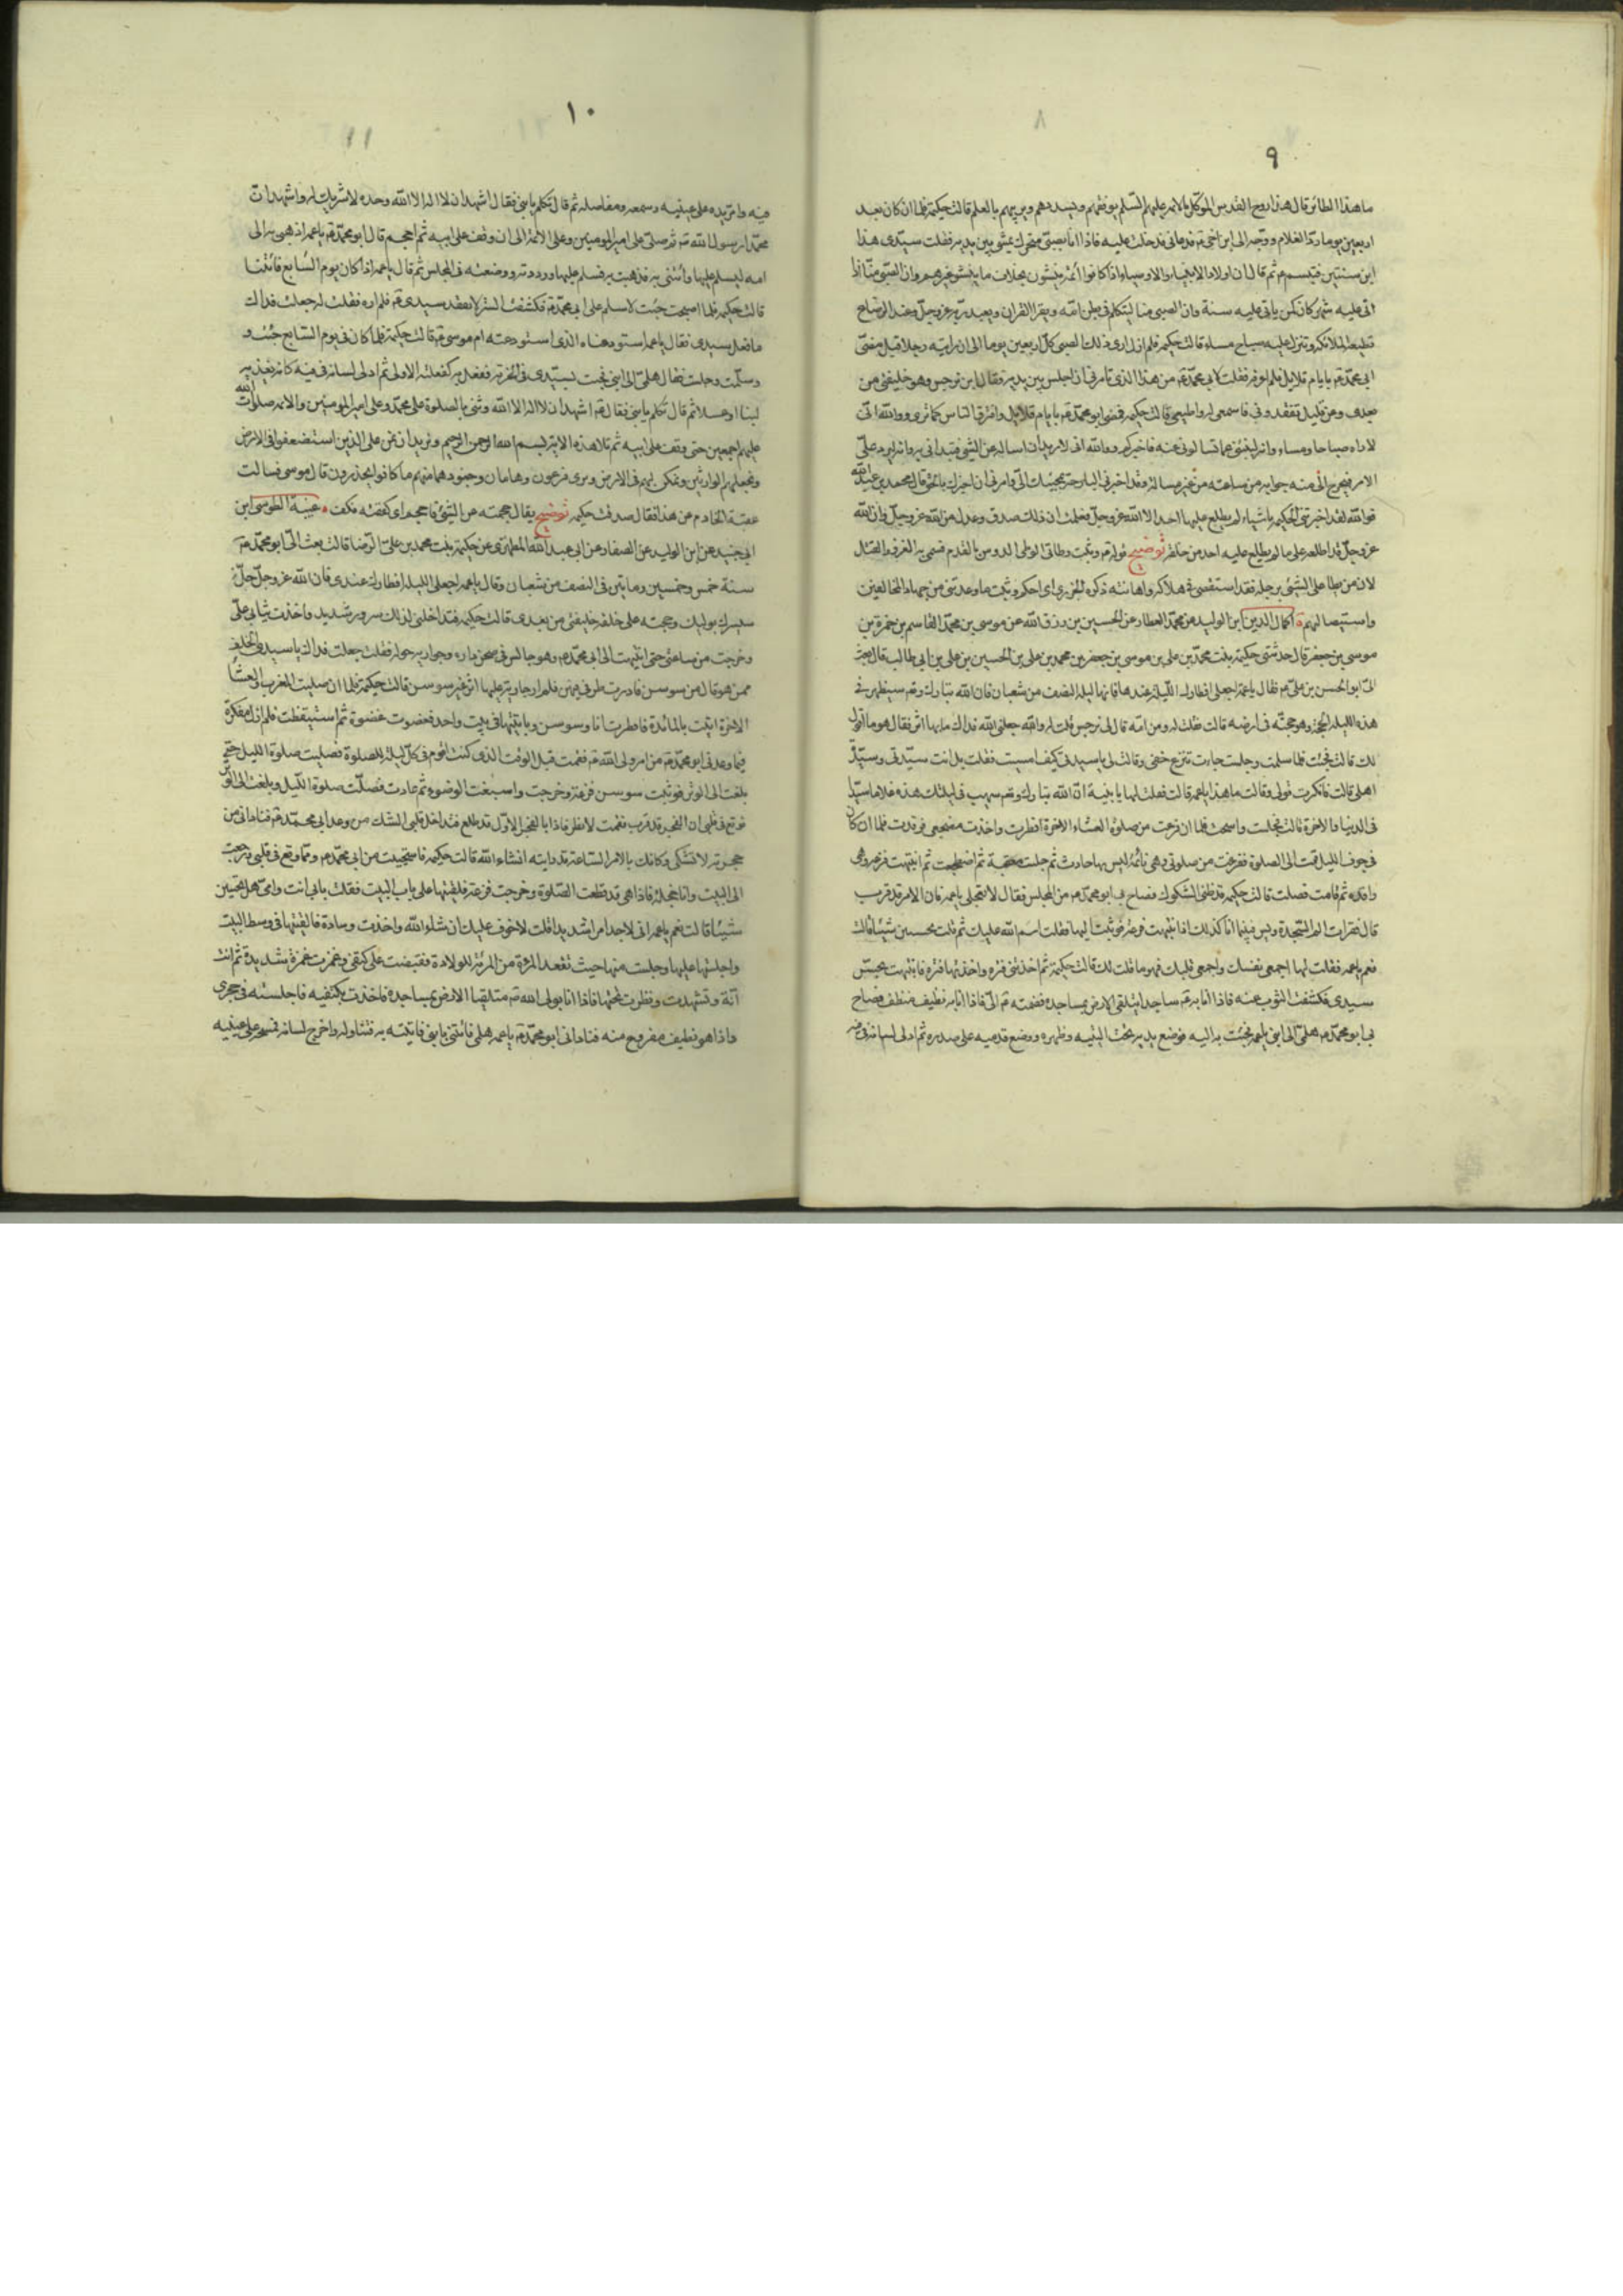 ٩
ما هذا الطائر قال هذا روح القدس الموكل بالائمة عليهم السلم يوفقهم ويسددهم ويربيهم بالعلم قالت حكيمة فلما ان كان بعد
اربعين يوما رد الغلام ووجه الى ابن اخى فدعانى فدخلت عليه فاذا انا بصبى متحرك يمشى بين يديه فقلت سيدى هذا
ابن سنتين فتبسم ثم قال ان اولاد الانبياء والاوصياء اذا كانوا ائمة ينشئون بخلاف ما ينشؤ غيرهم وان الصبى منا اذا
اتى عليه شهر كان كمن ياتى عليه سنة وان الصبى منا ليتكلم فى بطن امه ويقرأ القران ويعبد ربه عز وجل وعند الرضاع
تطيعه الملائكة وتنزل عليه صباح مساء قالت حكيمة فلم ازل ارى ذلك الصبى كل اربعين يوما الى ان رايته رجلا قبل مضى
ابى محمد بايام قلايل فلم اعرفه فقلت لابى محمد من هذا الذى تامرنى ان اجلس بين يديه فقال ابن نرجس وهو خليفتى من
بعدى وعن قليل تفقدونى فاسمعى له واطيعى قالت حكيمة فمضى ابو محمد بايام قلايل وافترق الناس كما ترى ووالله انى
لاراه صباحا ومساء وانه لينبئنى عما تسالونى عنه فاخبركم ووالله انى لاريد ان اساله عن الشئ فيبدانى به وانه ليرد على
الامر فيخرج الى منه جوابه من ساعته من غير مسالتى وقد اخبرنى البارحة بمجيئك الى وامرنى ان اخبرك بالحق قال محمد بن عبد الله
فوالله لقد اخبرتنى حكيمة باشياء لم يطلع عليها احد الا الله عز وجل فعلمت ان ذلك صدق وعدل من الله عز وجل وان الله
عز وجل قد اطلعه على ما لم يطلع عليه احد من خلقه توضيح قوله وثبت وطأتى الوطى الدوس بالقدم فسمى به الغزو والقتل
لان من يطا على الشئ برجله فقد استقصى فى هلاكه واهانته ذكره الجزرى اى احكم وثبت ما وعدتنى من جهاد المخالفين
واستيصالهم اكمال الدين ابن الوليد عن محمد العطار عن الحسين بن رزق الله عن موسى بن محمد القاسم بن حمزة بن
موسى بن جعفر قال حدثتنى حكيمة بنت محمد بن على بن موسى بن جعفر بن محمد بن على بن الحسين بن على بن ابى طالب قال بعث
الى ابو الحسن بن على فقال يا عمة اجعلى افطارك الليلة عندنا فانها ليلة النصف من شعبان فان الله تبارك وتعالى سيظهر فى
هذه الليلة الحجة وهو حجته فى ارضه قالت فقلت له ومن امه قال لى نرجس قلت له والله جعلنى الله فداك ما بها اثر فقال هو ما اقول
لك قالت فجئت فلما سلمت وجلست جاءت تنزع خفى وقالت لى يا سيدتى كيف امسيت فقلت بل انت سيدتى وسيدة
اهلى قالت فانكرت قولى وقالت ما هذا يا عمة قالت فقلت لها يا بنية ان الله تبارك وتعالى سيهب لك فى ليلتك هذه غلاما سيدا
فى الدنيا والاخرة قالت فجلست واستحيت فلما ان فرغت من صلوة العشاء الاخرة افطرت واخذت مضجعى فرقدت فلما ان كان
فى جوف الليل قمت الى الصلوة ففرغت من صلوتى وهى نائمة ليس بها حادث ثم جلست معقبة ثم اضطجعت ثم انتبهت فزعة وهى
راقدة ثم قامت فصلت قالت حكيمة فدخلتنى الشكوك فصاح بى ابو محمد من المجلس فقال لا تعجلى يا عمة فان الامر قد قرب
قال فقرات الم السجدة ويس فبينما انا كذلك اذا انتبهت فزعة فوثبت اليها فقلت اسم الله عليك ثم قلت تحسين شيئا قالت
نعم يا عمة فقلت لها اجمعى نفسك واجمعى قلبك فهو ما قلت لك قالت حكيمة ثم اخذتنى فترة واخذتها فترة فانتبهت بحس
سيدى فكشفت الثوب عنه فاذا انا به ساجدا يتلقى الارض بمساجده فضممته الى فاذا انا به نظيف منظف فصاح
بى ابو محمد هلمى الى ابنى يا عمة فجئت به اليه فوضع يديه تحت اليتيه وظهره ووضع قدميه على صدره ثم ادلى لسانه فى
١٠
فيه وامر يده على عينيه وسمعه ومفاصله ثم قال تكلم يا بنى فقال اشهد ان لا اله الا الله وحده لا شريك له واشهد ان
محمدا رسول الله ثم صلى على امير المومنين وعلى الائمة الى ان وقف على ابيه ثم احجم قال ابو محمد يا عمة اذهبى به الى
امه ليسلم عليها وائتنى به فذهبت به فسلم عليها ورددته ووضعته فى المجلس ثم قال يا عمة اذا كان يوم السابع فائتنا
قالت حكيمة فلما اصبحت جئت لاسلم على ابى محمد فكشفت الستر لافتقد سيدى فلم اره فقلت له جعلت فداك
ما فعل سيدى فقال يا عمة استودعناه الذى استودعته ام موسى قالت حكيمة فلما كان فى يوم السابع جئت و
وسلمت وجلست فقال هلمى الى ابنى فجئت بسيدى فى الخرقة ففعل به كفعلته الاولى ثم ادلى لسانه فى فيه كانه يغذيه
لبنا او عسلا ثم قال تكلم يا بنى فقال اشهد ان لا اله الا الله وثنى بالصلوة على محمد وعلى امير المومنين والائمة صلوات الله
عليهم اجمعين حتى وقف على ابيه ثم تلا هذه الاية بسم الله الرحمن الرحيم ونريد ان نمن على الذين استضعفوا فى الارض
ونجعلهم الوارثين ونمكن لهم فى الارض ونرى فرعون وهامان وجنودهما منهم ما كانوا يحذرون قال موسى فسالت
عقبة الخادم عن هذا فقال صدقت حكيمة توضيح يقال حجمته عن الشئ فاحجم اى كففته فكف غيبة الطوسى ابن
ابى جيد عن ابن الوليد عن الصفار عن ابى عبد الله المطهرى عن حكيمة بنت محمد بن على الرضا قالت بعث الى ابو محمد
سنة خمس وخمسين ومائتين فى النصف من شعبان وقال يا عمة اجعلى الليلة افطارك عندى فان الله عز وجل
سيسرك بوليه وحجته على خلقه خليفتى من بعدى قالت حكيمة فتداخلنى لذلك سرور شديد واخذت ثيابى على
وخرجت من ساعتى حتى انتهيت الى ابى محمد وهو جالس فى صحن داره وجواريه حوله فقلت جعلت فداك يا سيدى الخلف
ممن هو قال من سوسن فادرت طرفى فيهن فلم ار جارية عليها اثر غير سوسن قالت حكيمة فلما ان صليت المغرب والعشا
الاخرة اتيت بالمائدة فافطرت انا وسوسن وبايتتها فى بيت واحد فغفوت غفوة ثم استيقظت فلم ازل مفكرة
فيما وعدنى ابو محمد من امر ولى الله فقمت قبل الوقت الذى كنت اقوم فى كل ليلة للصلوة فصليت صلوة الليل حتى
بلغت الى الوتر فوثبت سوسن فزعة وخرجت واسبغت الوضوء ثم عادت فصلت صلوة الليل وبلغت الى الوتر
فوقع فى قلبى ان الفجر قد قرب فقمت لانظر فاذا بالفجر الاول قد طلع فتداخل قلبى الشك من وعد ابى محمد فنادانى من
حجرته لا تشكى وكانك بالامر الساعة قد رايته انشاء الله قالت حكيمة فاستحييت من ابى محمد ومما وقع فى قلبى ورجعت
الى البيت وانا خجلة فاذا هى قد قطعت الصلوة وخرجت فزعة فلقيتها على باب البيت فقلت بابى انت وامى هل تحسين
شيئا قالت نعم يا عمة انى لاجد امرا شديدا قلت لا خوف عليك ان شاء الله واخذت وسادة فالقيتها فى وسط البيت
واجلستها عليها وجلست منها حيث تقعد المرءة من المرءة للولادة فقبضت على كفى وغمزت غمزة شديدة ثم انت
انة وتشهدت ونظرت تحتها فاذا انا بولى الله متلقيا الارض بمساجده فاخذت بكتفيه فاجلسته فى حجرى
واذا هو نظيف مفروغ منه فنادانى ابو محمد يا عمة هلمى فائتنى بابنى فاتيته به فتناوله واخرج لسانه فمسحه على عينيه